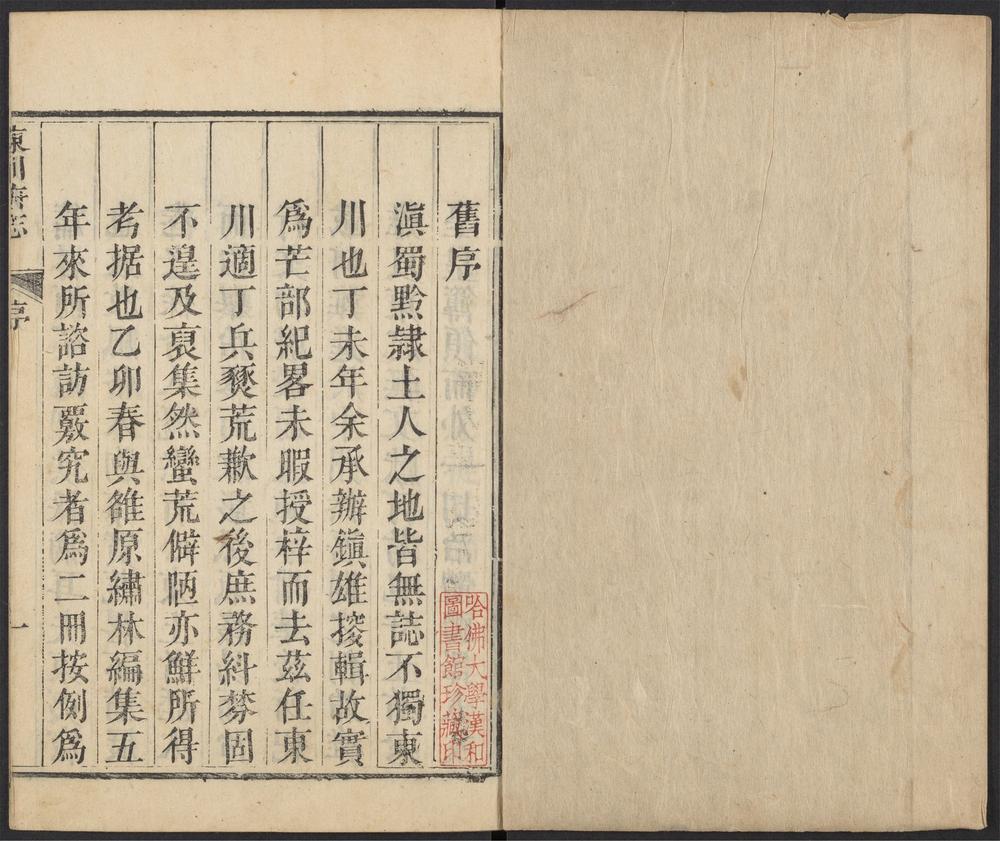 舊序
滇蜀黔隷土人之地皆無誌不獨東
川也丁未年余承辦鎮雄搜輯故實
爲芒部紀畧未暇授梓而去茲任東
川適丁兵燹荒歉之後庶務紏棼固
不遑及裒集然蠻荒僻陋亦鮮所得
考据也乙卯春與雒原繡林編集五
年來所諮訪覈究者爲二冊按例爲
東川府志
序
一
哈佛大學漢和
圖書館珍藏印